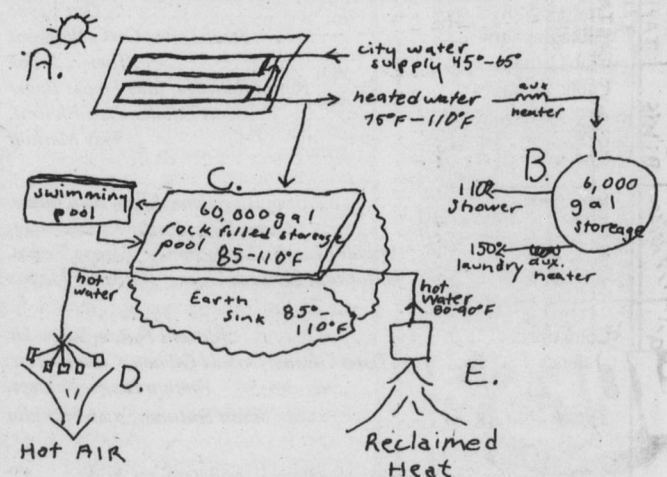 A.
city water
supply 45°-65°
heated water
75°F-110°F
aux
heater
B.
6,000
gal
storeage
110°
shower
150°
laundry aux.
heater
C.
swimming
pool
60,000 gal
rock filled storeage
pool
85-110°F
Earth
Sink 85°-
110°F
hot
water
hot
water
80-90°F
D.
HOT AIR
E.
Reclaimed
Heat